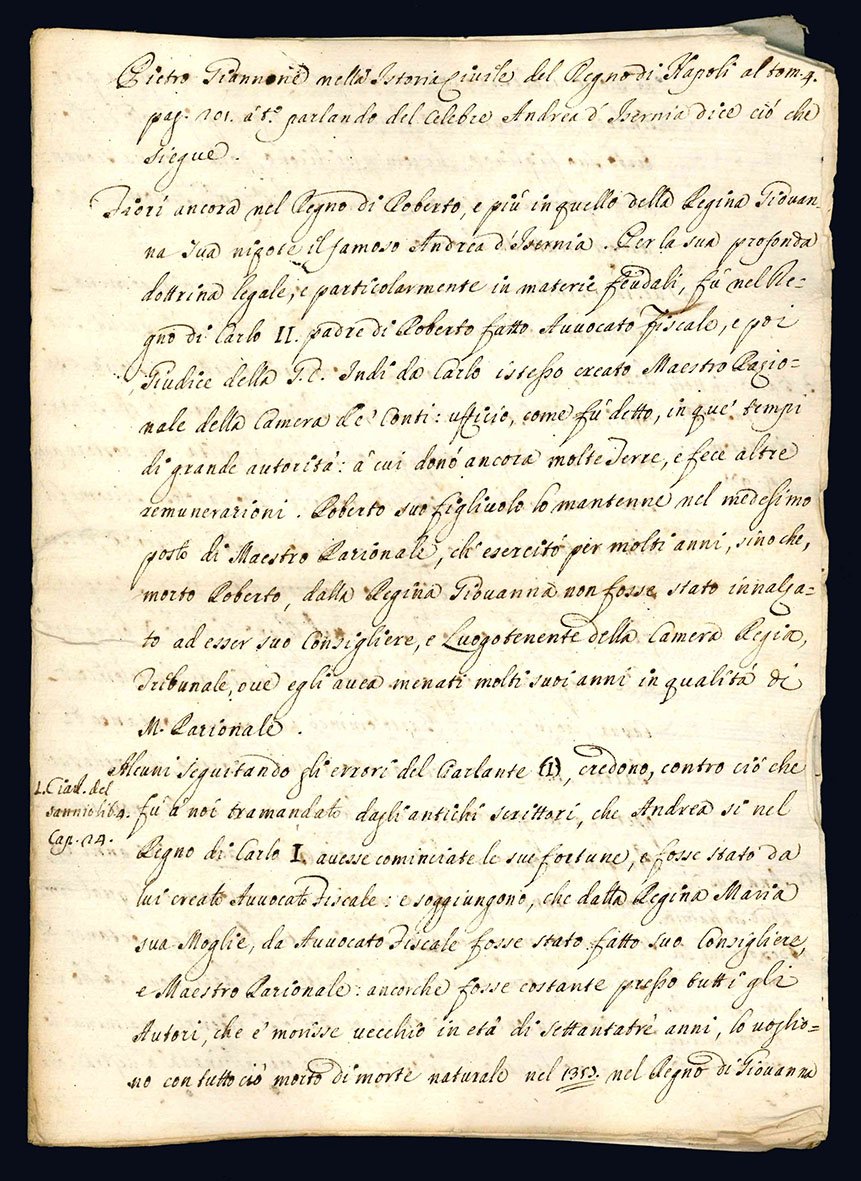 Pietro Giannone nella Istoria Civile del Regno di Napoli al tom. 4.
pag. 201. à t.º parlando del celebre Andrea d'Isernia dice ciò che
siegue.
Fiorì ancora nel Regno di Roberto, e più in quello della Regina Giovan-
na sua nipote il famoso Andrea d'Isernia. Per la sua profonda
dottrina legale, e particolarmente in materie feudali, fù nel Re=
gno di Carlo II. padre di Roberto fatto Avvocato Fiscale, e poi
Giudice della G. C. Indi da Carlo istesso creato Maestro Razio=
nale della Camera de' Conti: ufficio, come fù detto, in que' tempi
di grande autorità: à cui donò ancora molte Terre, e fece altre
remunerazioni. Roberto suo figliuolo lo mantenne nel medesimo
posto di Maestro Razionale, ch'esercitò per molti anni, sino che,
morto Roberto, dalla Regina Giovanna non fosse stato innalza=
to ad esser suo Consigliere, e Luogotenente della Camera Regia,
Tribunale, ove egli avea menati molti suoi anni in qualità di
M. Razionale.
Alcuni seguitando gli errori del Ciarlante (1), credono, contro ciò che
1. Ciarl. del
sannio lib. 4.
Cap. 24.
fù à noi tramandato dagli antichi scrittori, che Andrea si nel
Regno di Carlo I. avesse cominciate le sue fortune, e fosse stato da
lui creato Avvocato Fiscale: e soggiungono, che dalla Regina Maria
sua Moglie, da Avvocato Fiscale fosse stato fatto suo Consigliere,
e Maestro Razionale: ancorche fosse costante presso tutti gli
Autori, che e' morisse vecchio in età di settantatrè anni, lo voglio=
no con tutto ciò morto di morte naturale nel 1353. nel Regno di Giovanna